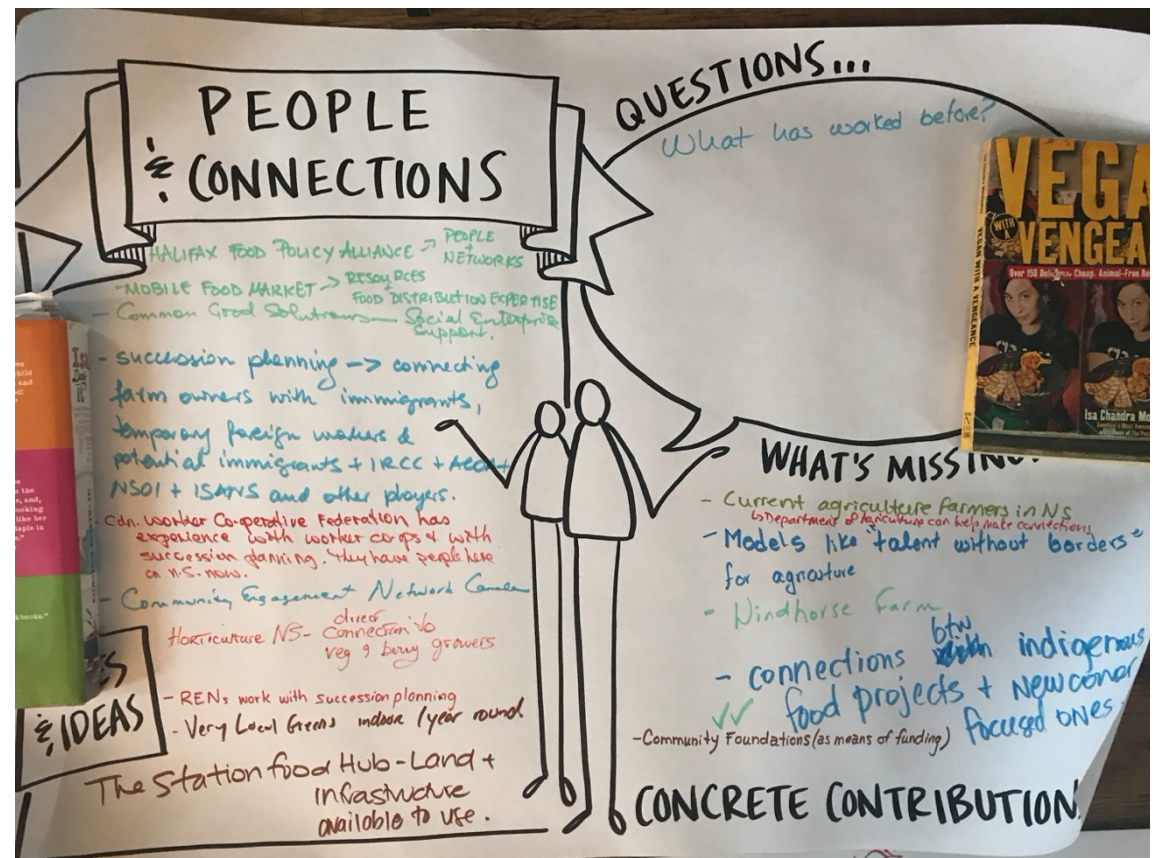 PEOPLE
& CONNECTIONS
HALIFAX FOOD POLICY ALLIANCE → PEOPLE
+
NETWORKS
- MOBILE FOOD MARKET → RESOURCES
+
FOOD DISTRIBUTION EXPERTISE
- Common Good Solutions — Social Enterprise
Support.
- succession planning → connecting
farm owners with immigrants,
temporary foreign workers &
potential immigrants + IRCC + ACOA +
NSOI + ISANS and other players.
Cdn. Worker Co-operative Federation has
experience with worker co-ops & with
succession planning. They have people here
in N.S. now.
- Community Engagement Network
HORTICULTURE NS - direct
connection to
veg & berry growers
& IDEAS
- RENs work with succession planning
- Very Local Greens indoor / year round
The Station food Hub - Land +
Infrastructure
available to use.
QUESTIONS...
What has worked before?
WHAT'S MISSING?
- Current agriculture farmers in NS
↳ Department of Agriculture can help make connections
- Models like "talent without borders"
for
- Windhorse Farm
- connections btw indigenous
food projects + Newcomer
focused ones.
✓✓
- Community Foundations (as means of funding)
CONCRETE CONTRIBUTION
VEGA
WITH A
VENGEA
Over 150 Cheap, Animal-Free Re
VEGAN WITH A VENGEANCE
Isa Chandra Mo
kbooks."